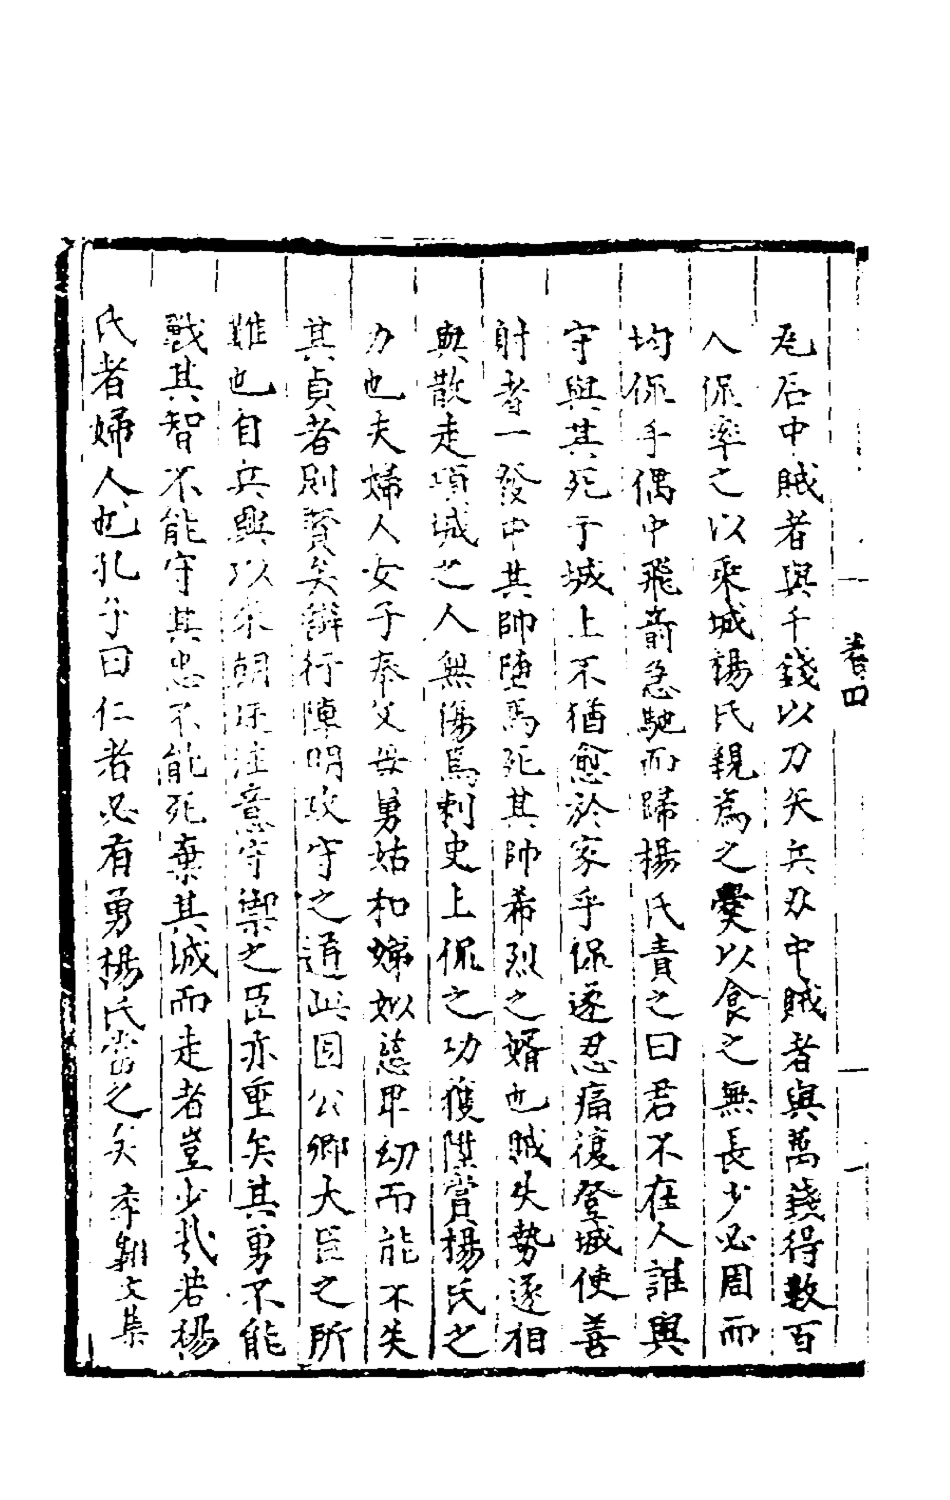 瓦石中賊者與千錢以刀矢兵刃中賊者與萬錢得數百
人侃率之以乘城楊氏親爲之爨以食之無長少必周而
均侃手偶中飛箭急馳而歸楊氏責之曰君不在人誰與
守與其死于城上不猶愈於家乎侃遂忍痛復登城使善
射者一發中其帥墮馬死其帥希烈之婿也賊失勢遂相
與散走項城之人無傷焉刺史上侃之功獲陞賞楊氏之
力也夫婦人女子奉父母舅姑和娣姒慈卑幼而能不失
其貞者則賢矣辭行陣明攻守之道此固公卿大臣之所
難也自兵興以來朝廷注意守禦之臣亦重矣其勇不能
戰其智不能守其忠不能死棄其城而走者豈少哉若楊
氏者婦人也孔子曰仁者必有勇楊氏當之矣 李翱文集
卷四